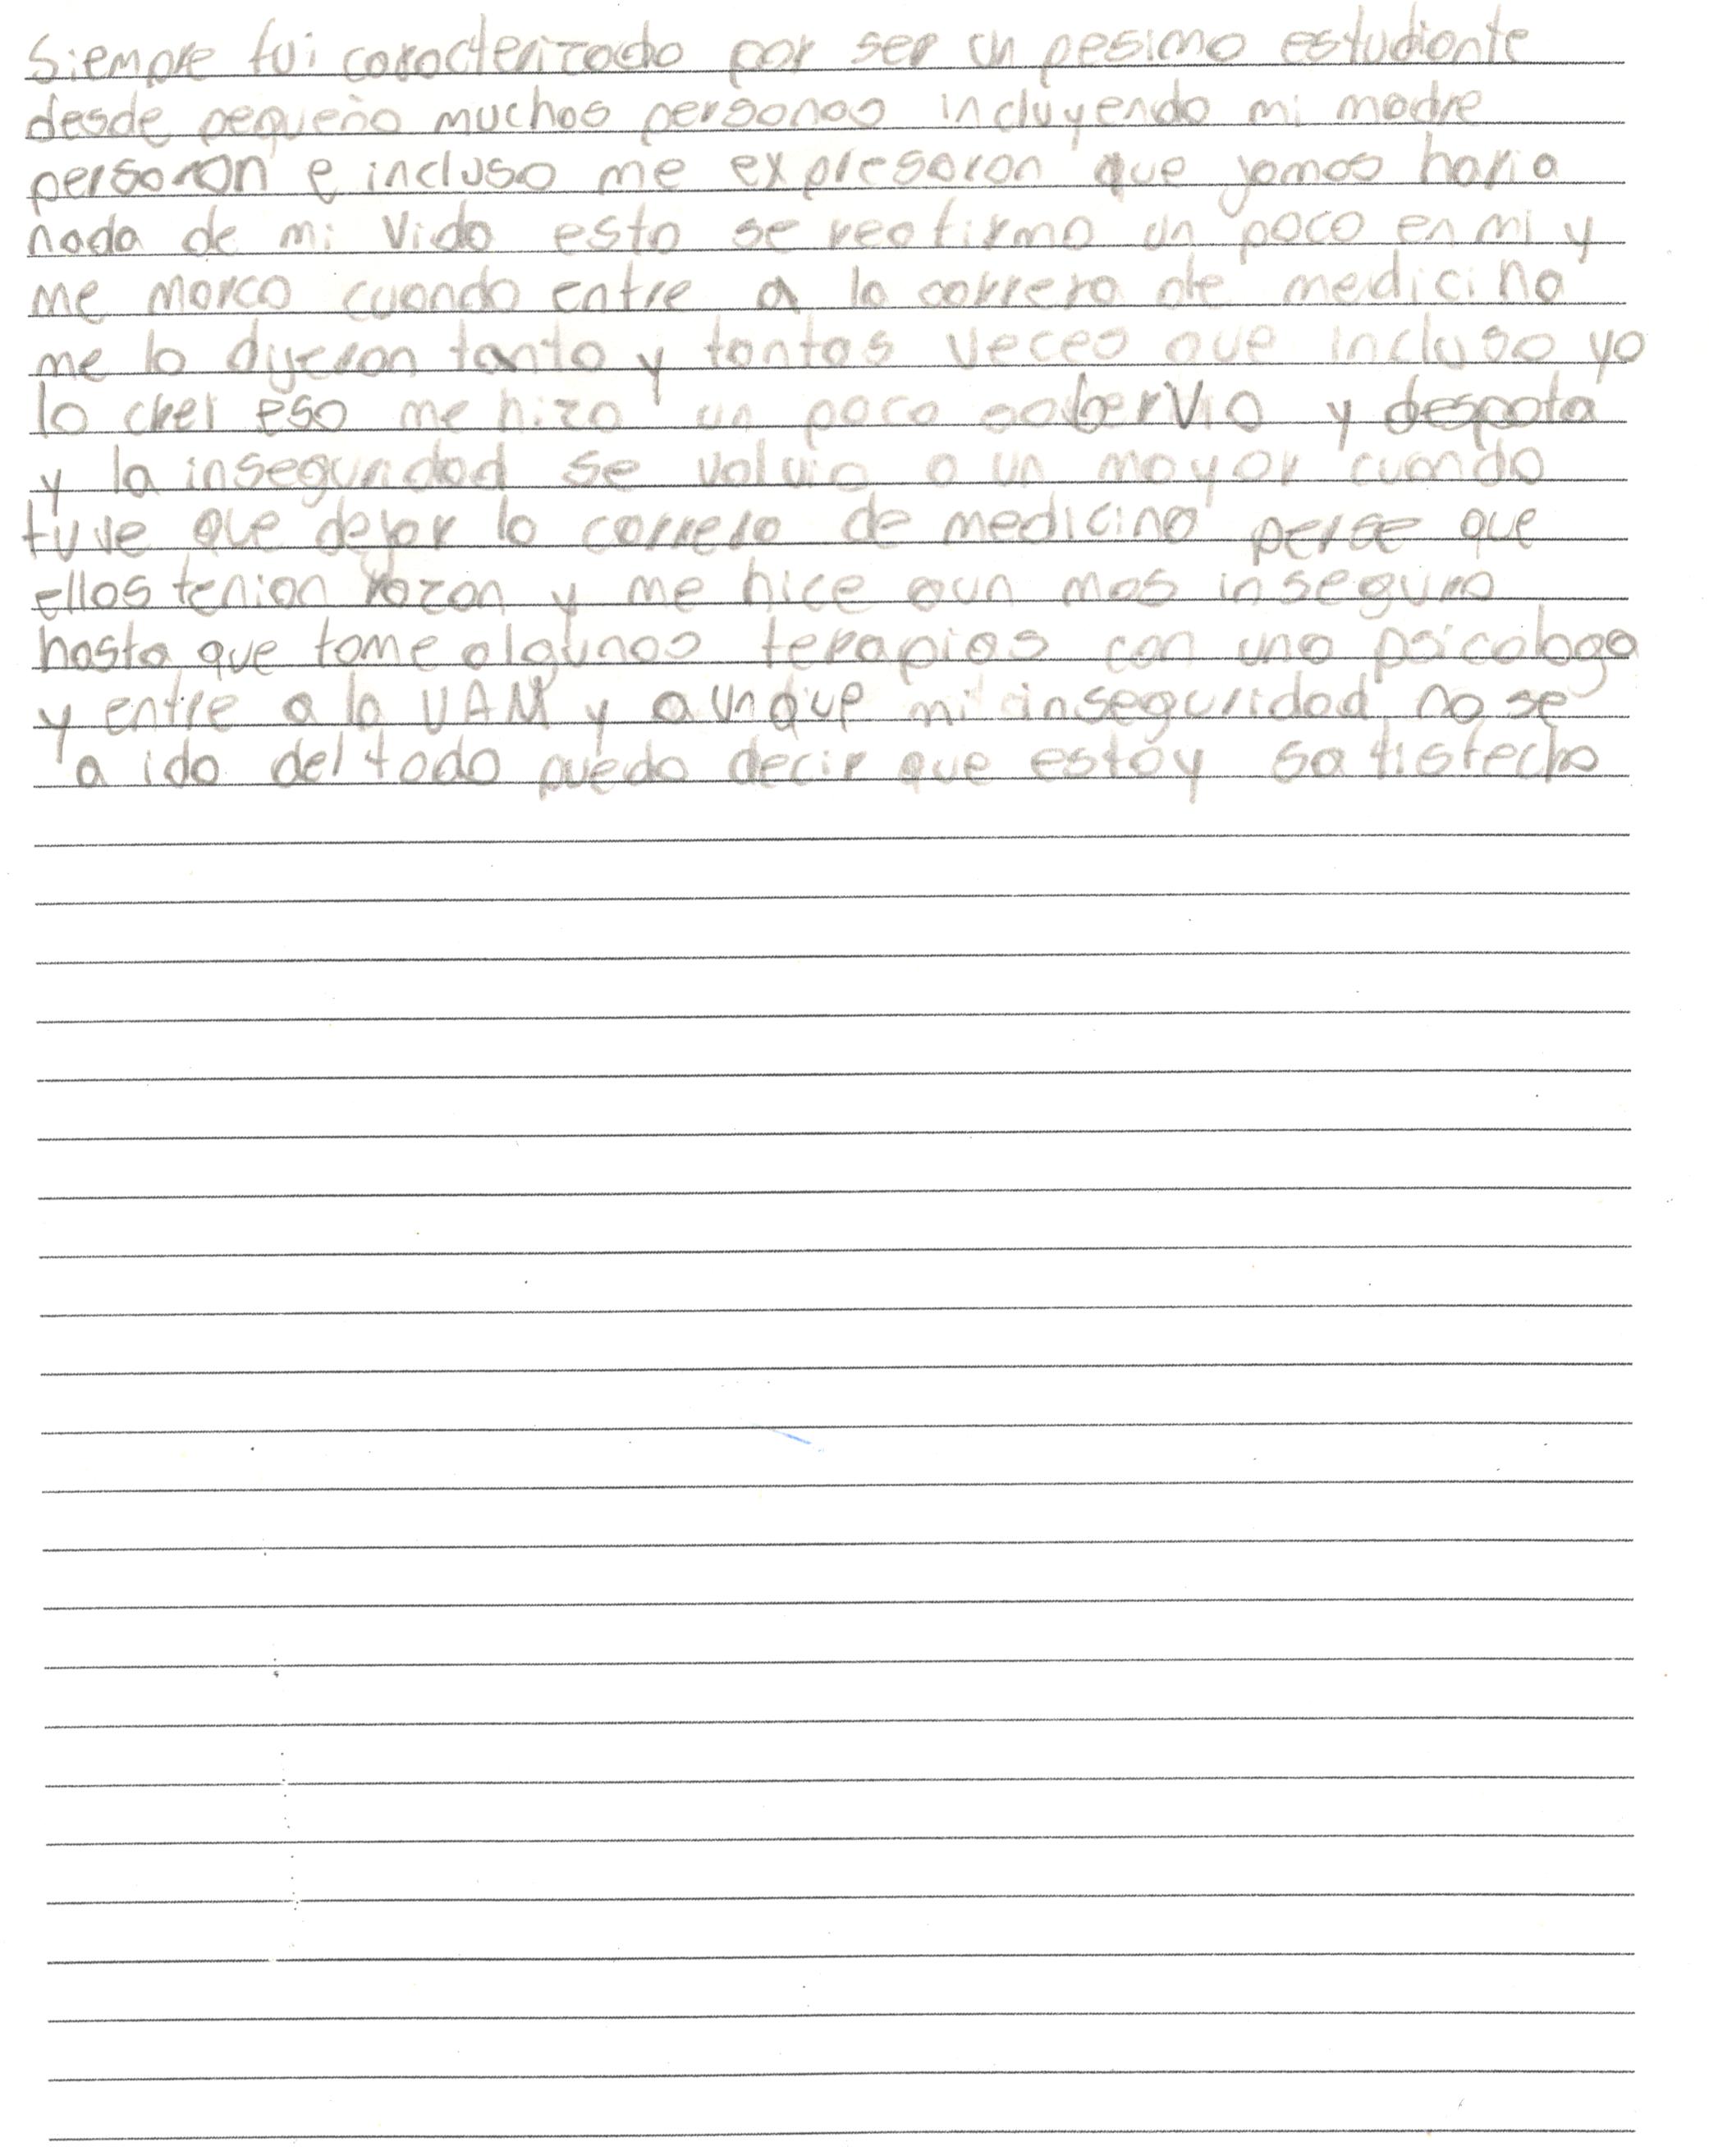 Siempre fui caracterizado por ser un pesimo estudiante
desde pequeño muchas personas incluyendo mi madre
persaron e incluso me expresaron que jamas haria
nada de mi vida esto se reafirmo un poco en mi y
me marco cuando entre a la carrera de medicina
me lo dijeron tanto y tantas veces que incluso yo
lo crei eso me hizo un poco sobervio y despota
y la inseguridad se volvio a un mayor cuando
tuve que dejar la carrera de medicina perse que
ellos tenian razon y me hice aun mas inseguro
hasta que tome algunas terapias con una psicologa
y entre a la UAM y aunque mi inseguridad no se
a ido del todo puedo decir que estoy satisfecho